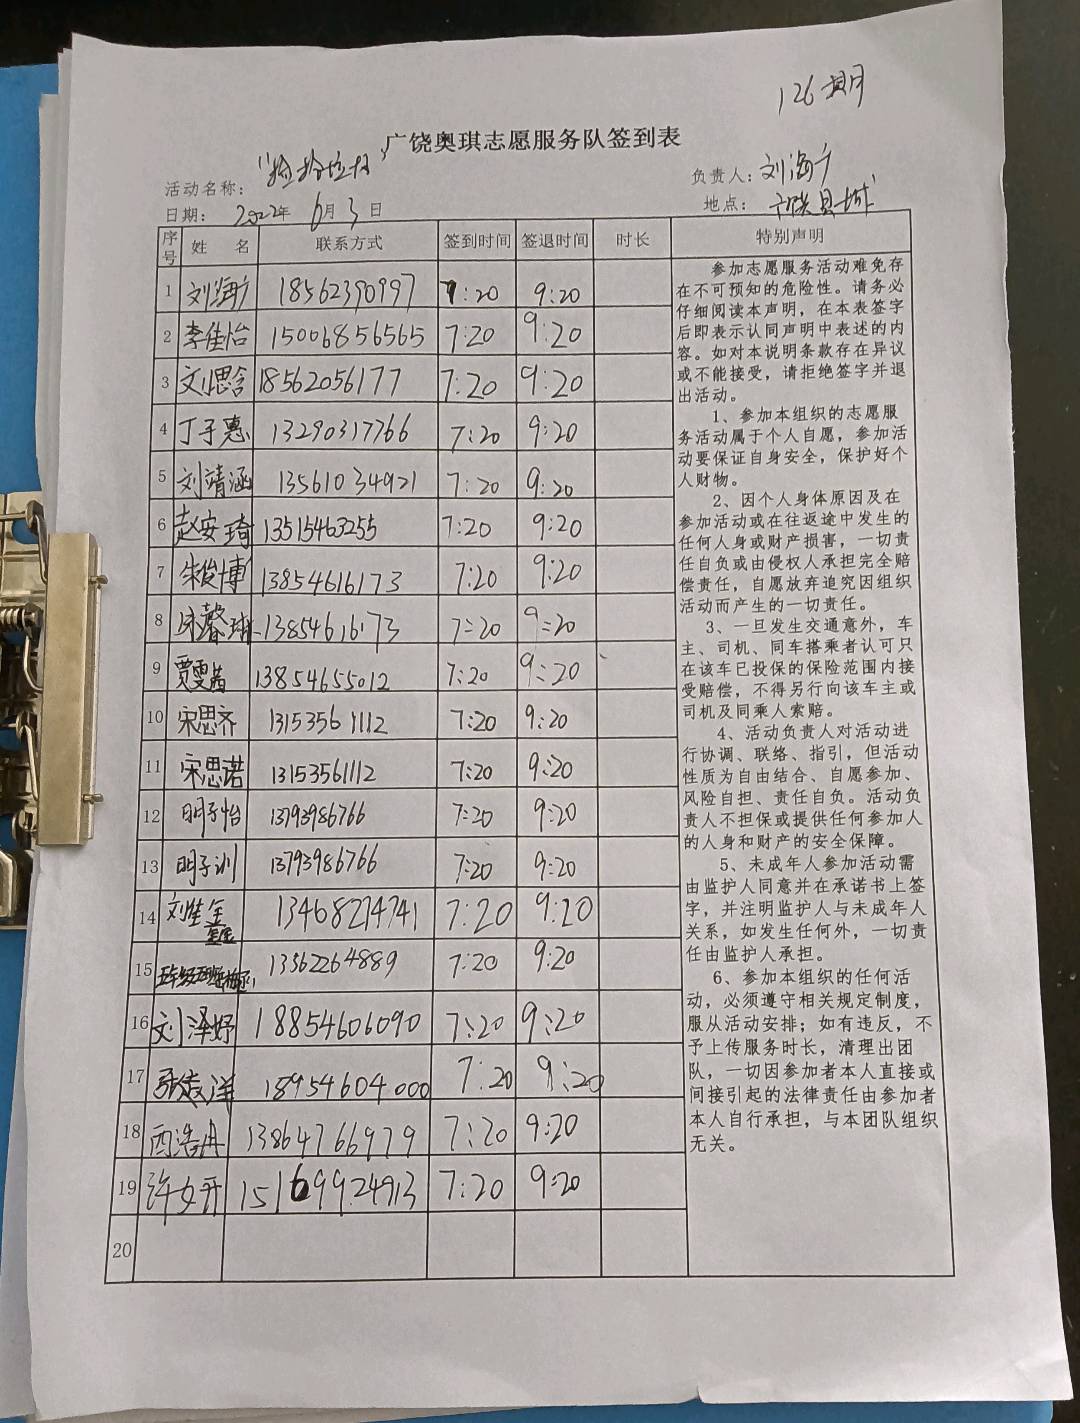 126期
广饶奥琪志愿服务队签到表
活动名称：“捡拾垃圾” 负责人：刘海广
日期：2022年 6月3日 地点：广饶县城
序号 姓 名 联系方式 签到时间 签退时间 时长 特别声明
1 刘海广 18562390997 7:20 9:20
2 李佳怡 15006856565 7:20 9:20
3 刘思含 18562056177 7:20 9:20
4 丁子惠 13290317766 7:20 9:20
5 刘靖涵 13561034921 7:20 9:20
6 赵安琦 13515463255 7:20 9:20
7 朱俊博 13854616173 7:20 9:20
8 馨 13854616173 7:20 9:20
9 贾雯茜 13854655012 7:20 9:20
10 宋思齐 13153561112 7:20 9:20
11 宋思诺 13153561112 7:20 9:20
12 明子怡 13793986766 7:20 9:20
13 明子训 13793986766 7:20 9:20
14 刘 13468274741 7:20 9:20
15 13562264889 7:20 9:20
16 刘泽妤 18854606090 7:20 9:20
17 洋 18954604000 7:20 9:20
18 西浩冉 13864766979 7:20 9:20
19 许文开 15169924913 7:20 9:20
20
参加志愿服务活动难免存
在不可预知的危险性。请务必
仔细阅读本声明，在本表签字
后即表示认同声明中表述的内
容。如对本说明条款存在异议
或不能接受，请拒绝签字并退
出活动。
1、参加本组织的志愿服
务活动属于个人自愿，参加活
动要保证自身安全，保护好个
人财物。
2、因个人身体原因及在
参加活动或在往返途中发生的
任何人身或财产损害，一切责
任自负或由侵权人承担完全赔
偿责任，自愿放弃追究因组织
活动而产生的一切责任。
3、一旦发生交通意外，车
主、司机、同车搭乘者认可只
在该车已投保的保险范围内接
受赔偿，不得另行向该车主或
司机及同乘人索赔。
4、活动负责人对活动进
行协调、联络、指引，但活动
性质为自由结合、自愿参加、
风险自担、责任自负。活动负
责人不担保或提供任何参加人
的人身和财产的安全保障。
5、未成年人参加活动需
由监护人同意并在承诺书上签
字，并注明监护人与未成年人
关系，如发生任何外，一切责
任由监护人承担。
6、参加本组织的任何活
动，必须遵守相关规定制度，
服从活动安排；如有违反，不
予上传服务时长，清理出团
队，一切因参加者本人直接或
间接引起的法律责任由参加者
本人自行承担，与本团队组织
无关。